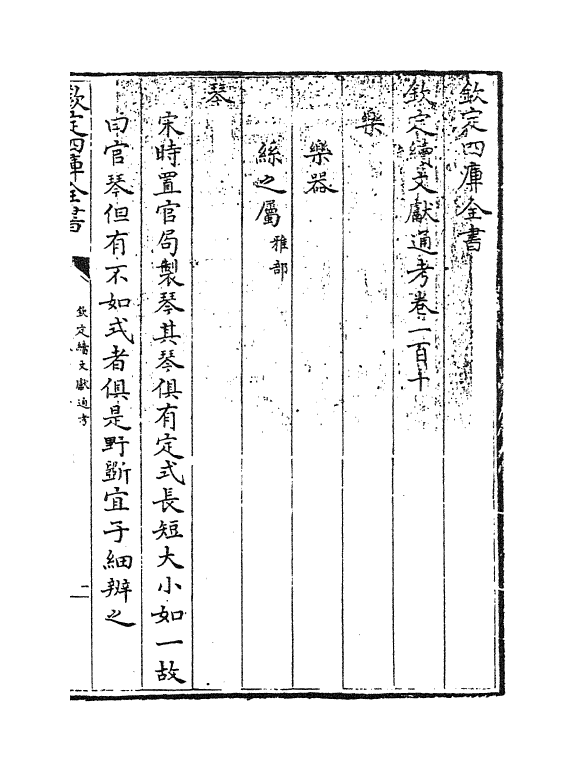 欽定四庫全書
欽定續文獻通考卷一百十
樂
樂器
絲之屬雅部
琴
宋時置官局製琴其琴俱有定式長短大小如一故
曰官琴但有不如式者俱是野斵宜子細辨之
欽定四庫全書
欽定續文獻通考